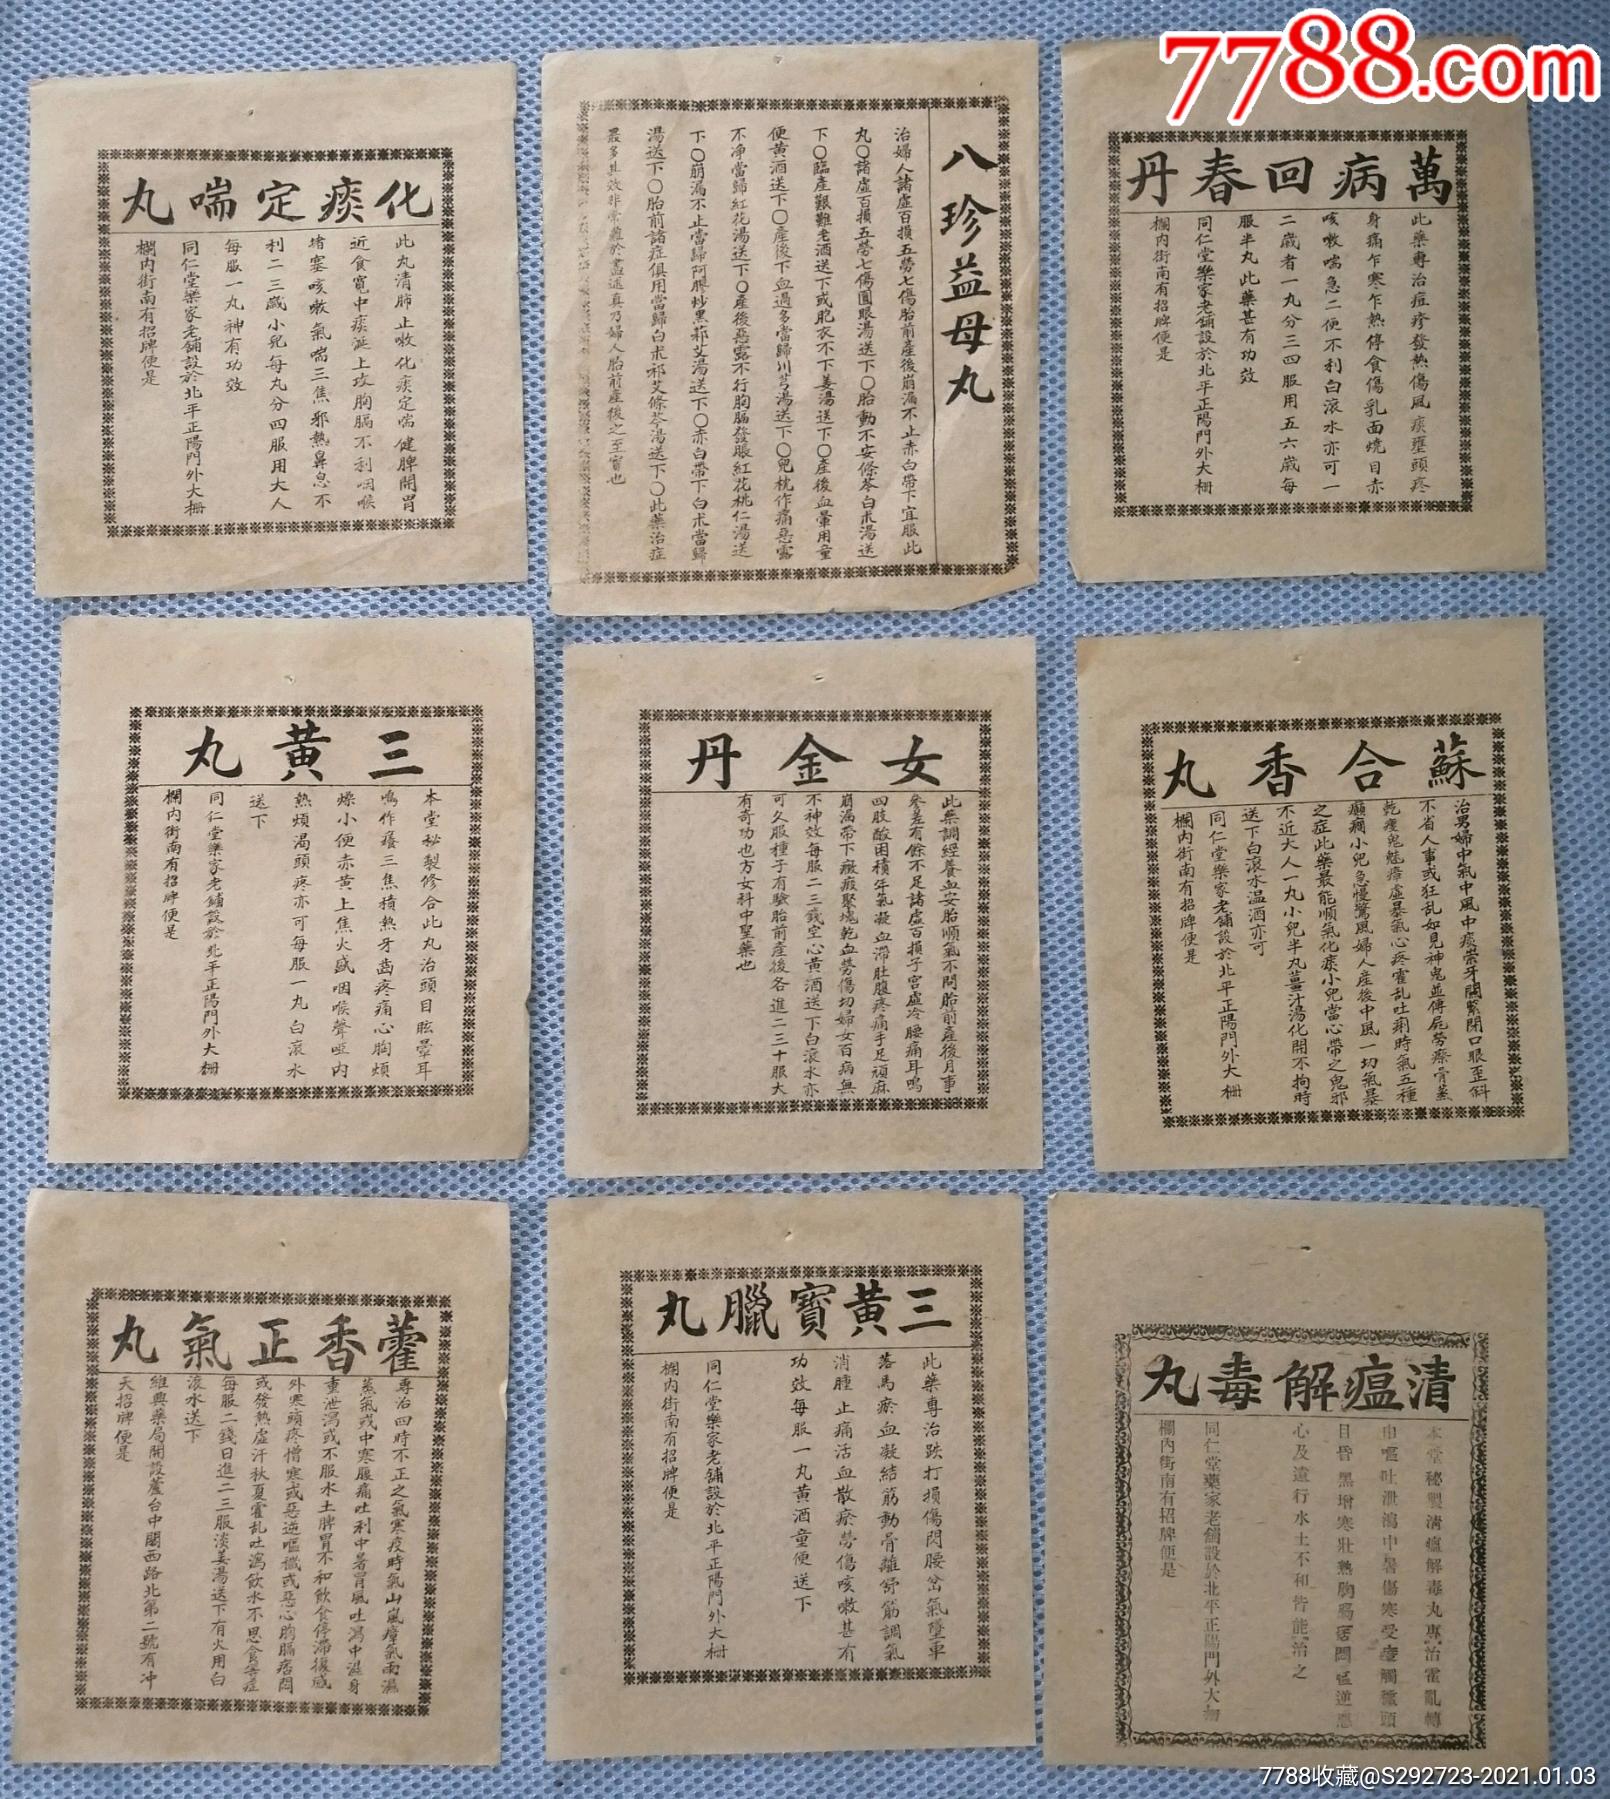 7788.com
化痰定喘丸
此丸清肺止嗽化痰定喘健脾開胃
近食寬中痰涎上攻胸膈不利咽喉
堵塞咳嗽氣喘三焦邪熱鼻息不
利二三歲小兒每丸分四服用大人
每服一丸神有功效
同仁堂樂家老鋪設於北平正陽門外大柵
欄內街南有招牌便是
八珍益母丸
治婦人諸虛百損五勞七傷胎前產後崩漏不止赤白帶下宜服此
丸〇諸虛百損五勞七傷圓眼湯送下〇胎動不安條芩白朮湯送
下〇臨產艱難老酒送下或胞衣不下姜湯送下〇產後血暈用童
便黃酒送下〇產後下血過多當歸川芎湯送下〇兒枕作痛惡露
不净當歸紅花湯送下〇產後惡露不行胸膈發脹紅花桃仁湯送
下〇崩漏不止當歸阿膠炒黑蘄艾湯送下〇赤白帶下白朮當歸
湯送下〇胎前諸症俱用當歸白朮祁艾條芩湯送下〇此藥治症
最多其效非常難於盡述真乃婦人胎前產後之至寶也
萬病回春丹
此藥專治痘疹發熱傷風痰壅頭疼
身痛乍寒乍熱停食傷乳面燒目赤
咳嗽喘急二便不利白滾水亦可一
二歲者一丸分三四服用五六歲每
服半丸此藥甚有功效
同仁堂樂家老鋪設於北平正陽門外大柵
欄內街南有招牌便是
三黃丸
本堂秘製修合此丸治頭目眩暈耳
鳴作癢三焦積熱牙齒疼痛心胸煩
燥小便赤黃上焦火盛咽喉聲啞內
熱煩渴頭疼亦可每服一丸白滾水
送下
同仁堂樂家老鋪設於北平正陽門外大柵
欄內街南有招牌便是
女金丹
此藥調經養血安胎順氣不問胎前產後月事
參差有餘不足諸虛百損子宮虛冷腰痛耳鳴
四肢酸困積年氣凝血滯肚腹疼痛手足頑麻
崩漏帶下癥瘕聚塊乾血勞傷切婦女百病無
不神效每服二三錢空心黃酒送下白滾水亦
可久服種子有驗胎前產後各進二三十服大
有奇功也方女科中聖藥也
蘇合香丸
治男婦中氣中風中痰牙關緊閉口眼歪斜
不省人事或狂乱如見神鬼並傳屍勞瘵骨蒸
乾瘦鬼魅瘴虛暴氣心疼霍乱吐痢時氣五種
癲癇小兒急慢驚風婦人產後中風一切氣暴
之症此藥最能順氣化痰小兒當心帶之鬼邪
不近大人一丸小兒半丸薑汁湯化開不拘時
送下白滾水温酒亦可
同仁堂樂家老鋪設於北平正陽門外大柵
欄內街南有招牌便是
藿香正氣丸
專治四時不正之氣寒疫時氣山嵐瘴氣雨濕
蒸氣或中寒腹痛吐利中暑冒風吐瀉中濕身
重泄瀉或不服水土脾胃不和飲食停滯復感
外寒頭疼憎寒或惡逆嘔或惡心胸膈痞悶
或發熱虛汗秋夏霍乱吐瀉飲水不思食等症
每服二錢日進二三服淡姜湯送下有火用白
滾水送下
維興藥局開設蘆台中閘西路北第二號有冲
天招牌便是
三黃寶臘丸
此藥專治跌打損傷閃腰岔氣墜車
落馬瘀血凝結筋動骨離舒筋調氣
消腫止痛活血散瘀勞傷咳嗽甚有
功效每服一丸黃酒童便送下
同仁堂樂家老鋪設於北平正陽門外大柵
欄內街南有招牌便是
清瘟解毒丸
本堂秘製清瘟解毒丸專治霍亂轉
嘔吐泄瀉中暑傷寒受瘟觸穢頭
目昏黑增寒壯熱胸膈痞悶逆惡
心及遠行水土不和皆能治之
同仁堂樂家老鋪設於北平正陽門外大
欄內街南有招牌便是
7788收藏@S292723-2021.01.03